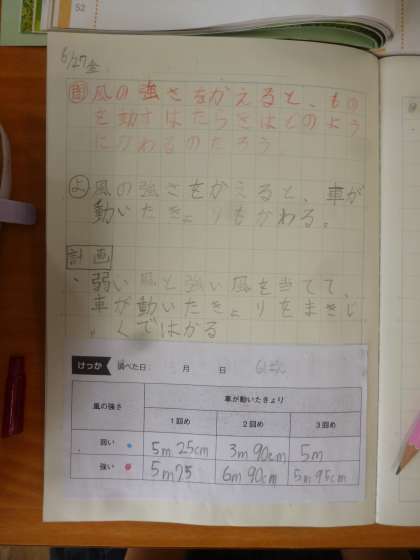 52
6/27 金
問 風の強さをかえると、もの
を動かすはたらきはどのよう
にかわるのだろう
よ 風の強さをかえると、車が
動いたきょりもかわる。
計画
・弱い風と強い風を当てて、
車が動いたきょりをまきじ
ゃくではかる
けっか 調べた日： 月 日
風の強さ 車が動いたきょり
1回め 2回め 3回め
弱い 5m 25cm 3m 90cm 5m
強い 5m75 6m 90cm 5m 95cm